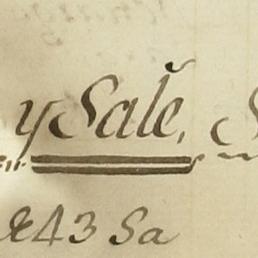 y Salĕ, S
&43 Sa